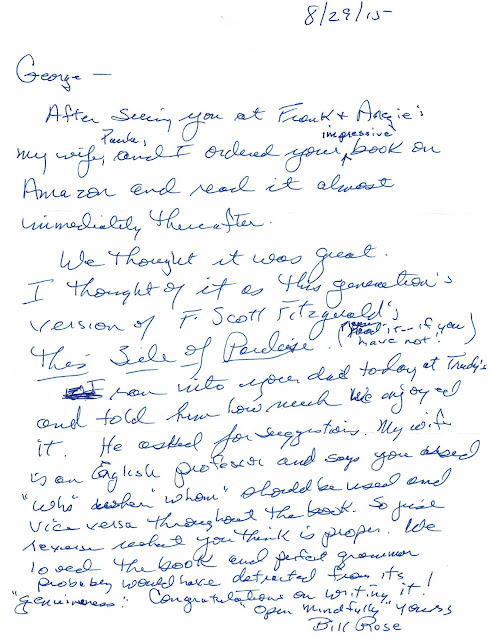 8/29/15
George —
After seeing you at Frank + Angie's
my wife, Paula, and I ordered your impressive book on
Amazon and read it almost
immediately thereafter.
We thought it was great.
I thought of it as this generation's
version of F. Scott Fitzgerald's
This Side of Paradise. (read it — if you
have not!)
I ran into your dad today at Trudy's
and told him how much we enjoyed
it. He asked for suggestions. My wife
is an English professor and says you used
"who" when "whom" should be used and
vice versa throughout the book. So just
reverse what you think is proper. We
loved the book and perfect grammar
probably would have detracted from its
"genuineness." Congratulations on writing it!
"Open mindfully" yours
Bill Rose